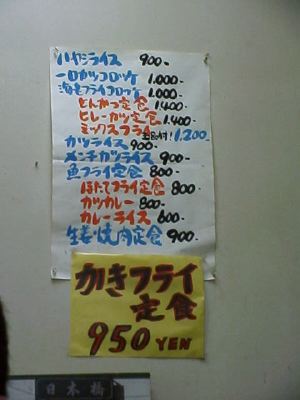 ハヤシライス 900-
一口カツコロッケ 1.000-
海老フライコロッケ 1.000-
とんかつ定食 1.400-
ヒレーカツ定食 1.400-
ミックスフライ 1.200-
カツライス 900-
メンチカツライス 900-
魚フライ定食 800-
ほたてフライ定食 800-
カツカレー 800-
カレーライス 600-
生姜焼肉定食 900-
かきフライ
定食
950 YEN
日本橋